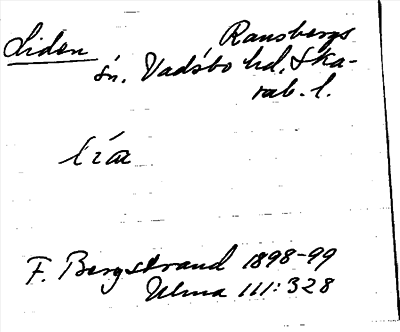 Liden
Ransbergs
sn. Vadsbo hd, Ska-
rab. l.
F. Bergstrand 1898-99
Ulma 111:328